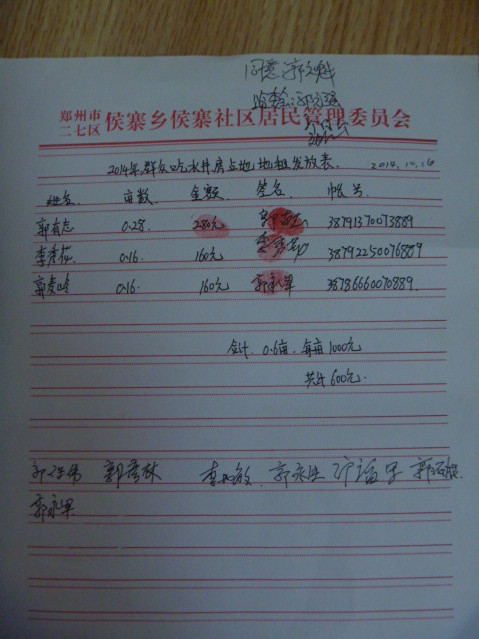 同意 郭文科
监委会
郑州市二七区 侯寨乡侯寨社区居民管理委员会
2014年群众吃水井房占地地租发放表. 2014.10.16
姓名. 亩数. 金额. 签名 帐号.
郭有志 0.28. 280元 38791370073889
李彦荷. 0.16. 160元 38792250076889
郭麦玲 0.16. 160元 郭永军 38786660070889.
合计. 0.6亩. 每亩1000元
共计600元.
郭彦林 郭永生
郭永军